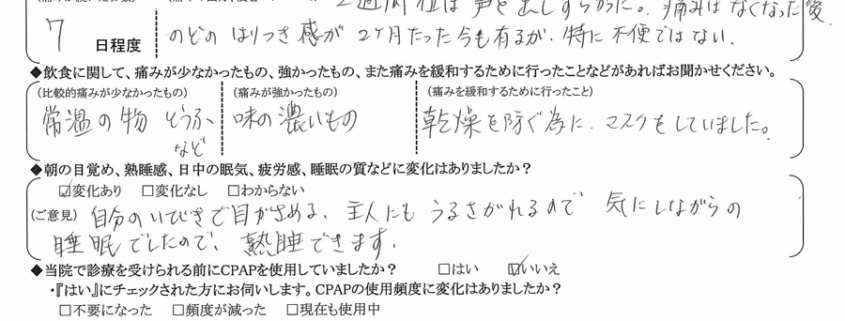 2週間位は声を出しずらかった。痛みはなくなった後、
7 日程度 のどのはりつき感が2ヶ月たった今も有るが、特に不便ではない。
◆飲食に関して、痛みが少なかったもの、強かったもの、また痛みを緩和するために行ったことなどがあればお聞かせください。
(比較的痛みが少なかったもの) (痛みが強かったもの) (痛みを緩和するために行ったこと)
常温の物 とうふ、 味の濃いもの 乾燥を防ぐ為に、マスクをしていました。
など
◆朝の目覚め、熟睡感、日中の眠気、疲労感、睡眠の質などに変化はありましたか?
☑変化あり □変化なし □わからない
(ご意見) 自分のいびきで目がさめる、主人にもうるさがれるので 気にしながらの
睡眠でしたので、熟睡できます。
◆当院で診療を受けられる前にCPAPを使用していましたか? □はい ☑いいえ
・『はい』にチェックされた方にお伺いします。CPAPの使用頻度に変化はありましたか?
□不要になった □頻度が減った □現在も使用中